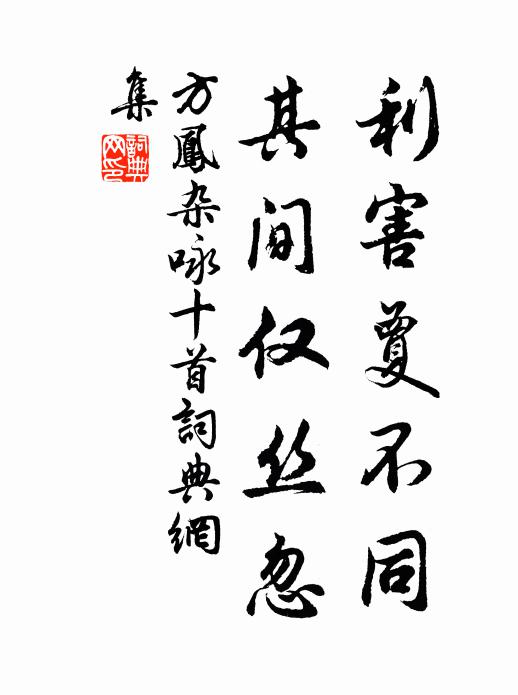 利害夐不同
其间仅丝忽
方鳳杂咏十首詞典網
集
詞典网印